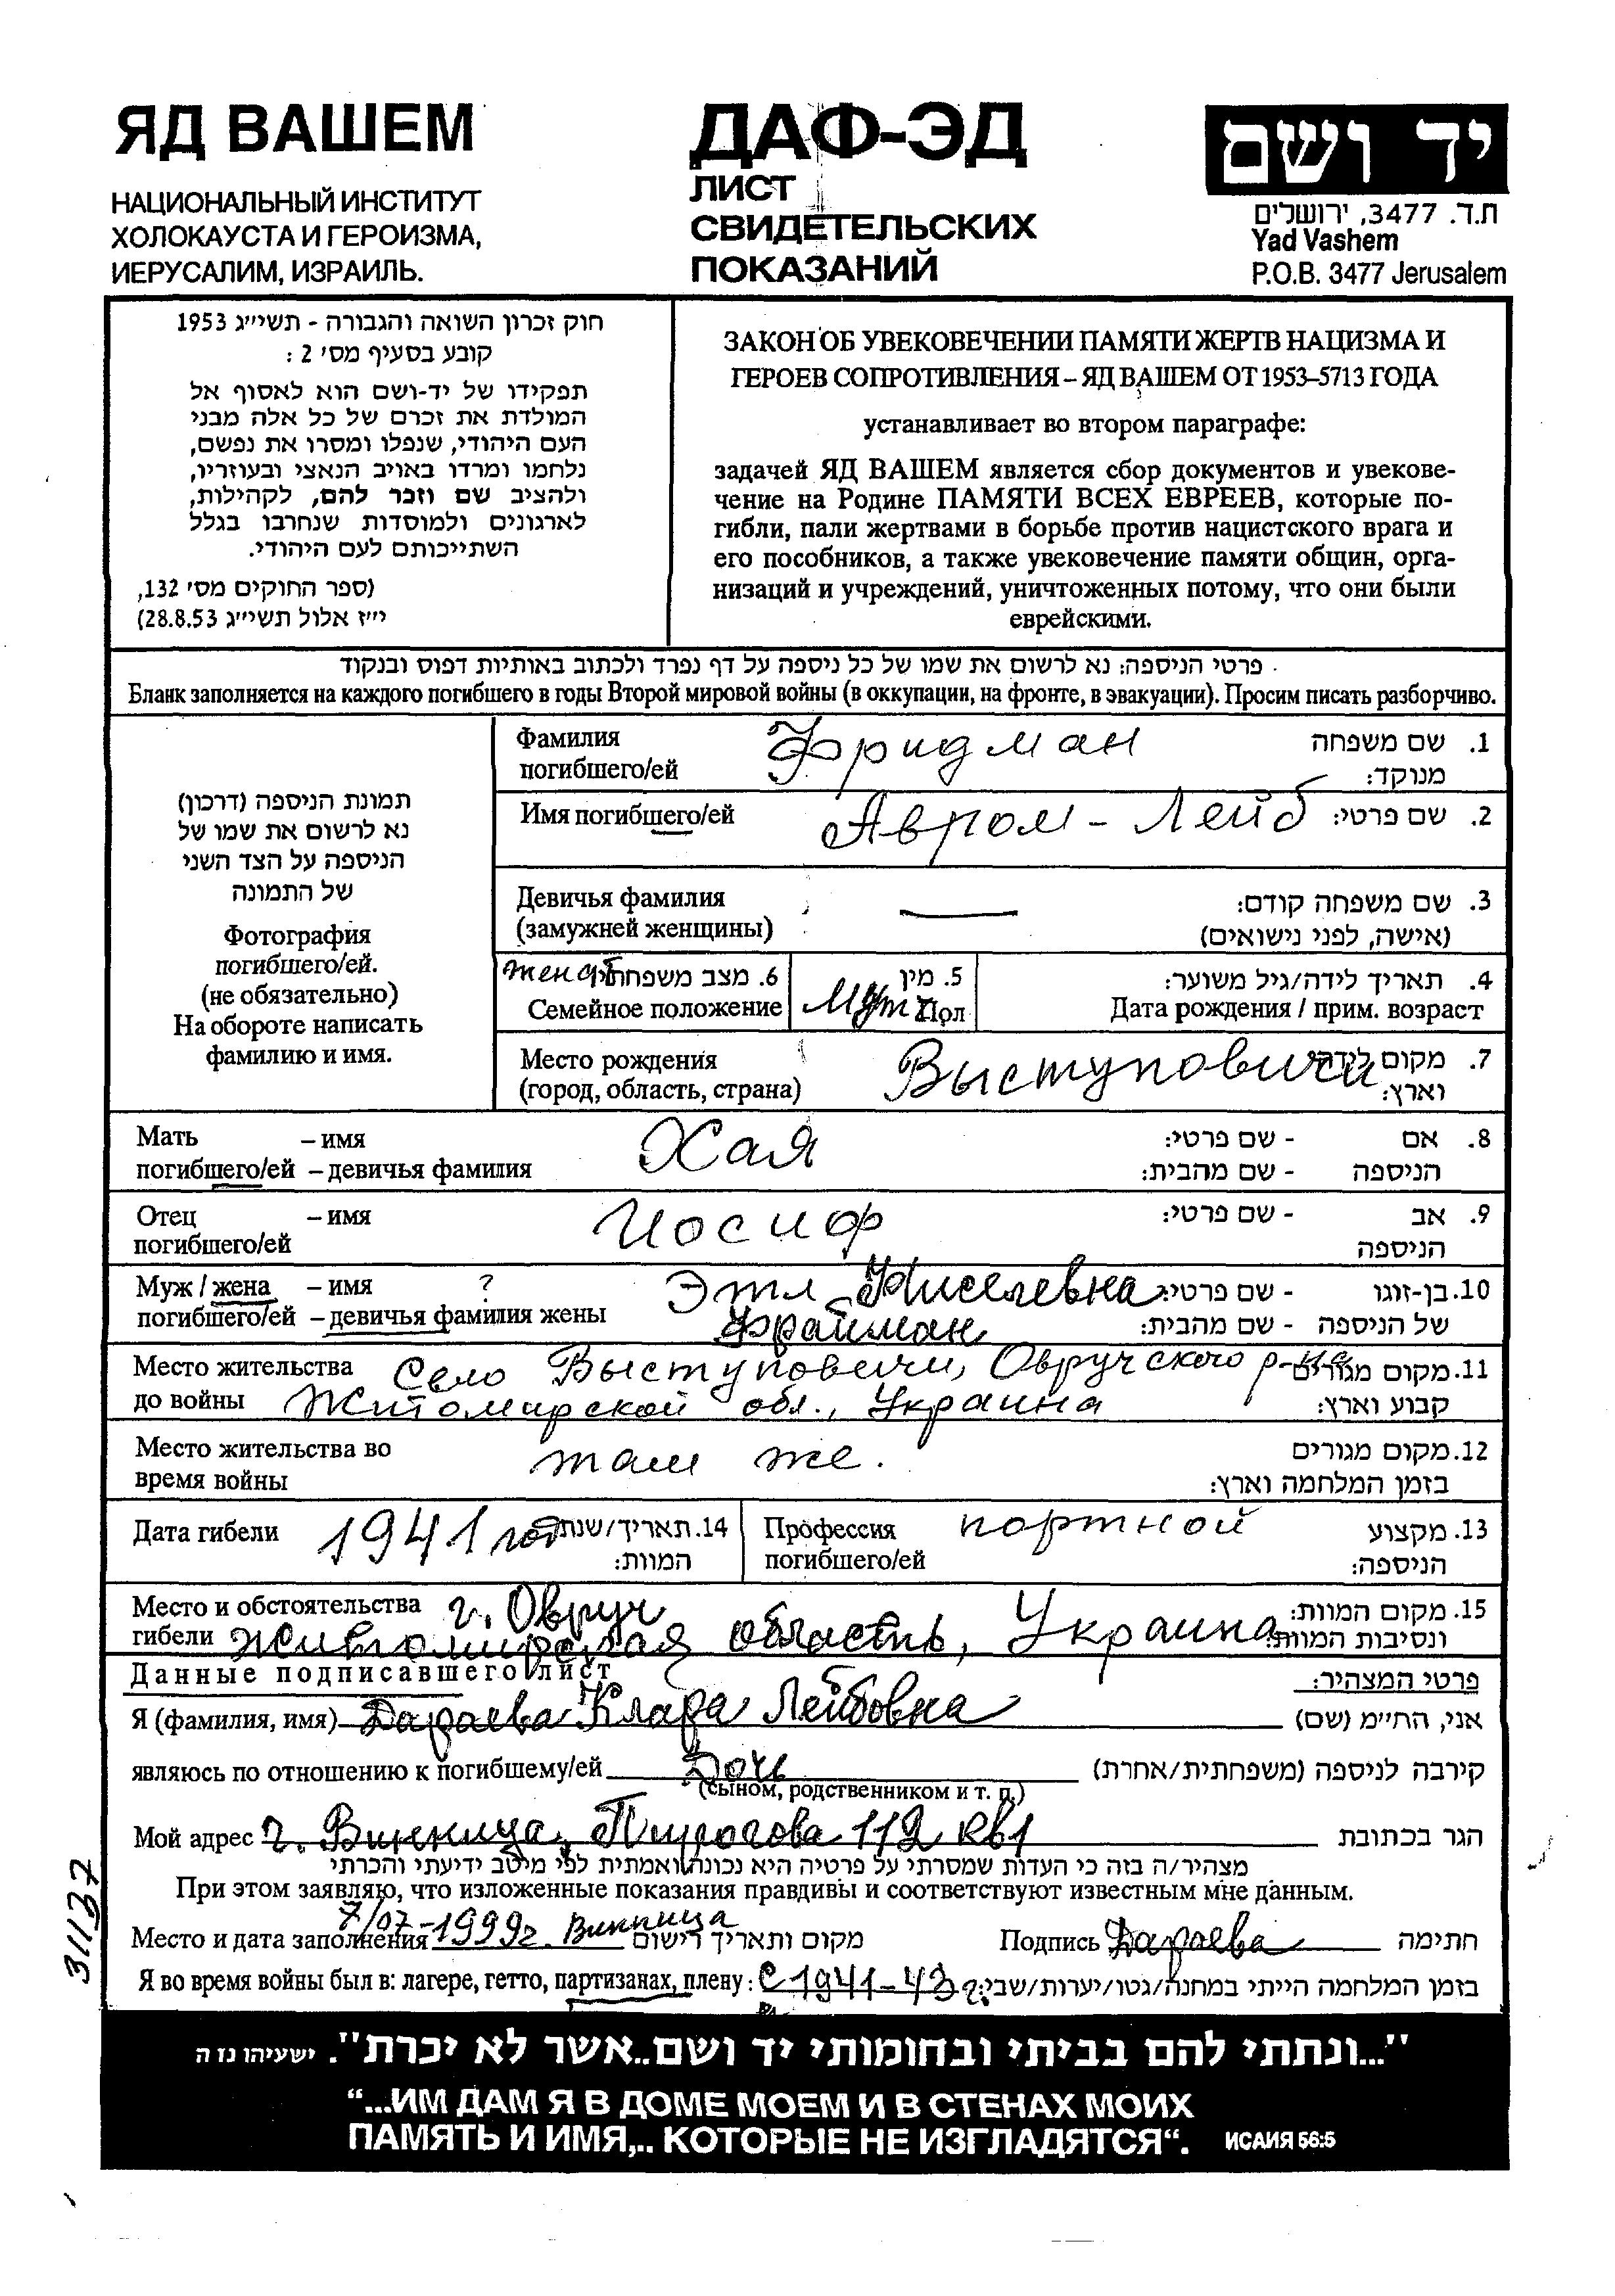 ЯД ВАШЕМ
НАЦИОНАЛЬНЫЙ ИНСТИТУТ
ХОЛОКАУСТА И ГЕРОИЗМА,
ИЕРУСАЛИМ, ИЗРАИЛЬ.
ДАФ-ЭД
ЛИСТ
СВИДЕТЕЛЬСКИХ
ПОКАЗАНИЙ
יד ושם
ת.ד. 3477, ירושלים
Yad Vashem
P.O.B. 3477 Jerusalem
חוק זכרון השואה והגבורה - תשי״ג 1953
קובע בסעיף מס׳ 2 :
תפקידו של יד-ושם הוא לאסוף אל
המולדת את זכרם של כל אלה מבני
העם היהודי, שנפלו ומסרו את נפשם,
נלחמו ומרדו באויב הנאצי ובעוזריו,
ולהציב שם וזכר להם, לקהילות,
לארגונים ולמוסדות שנחרבו בגלל
השתייכותם לעם היהודי.
(ספר החוקים מס׳ 132,
י״ז אלול תשי״ג 28.8.53)
ЗАКОН ОБ УВЕКОВЕЧЕНИИ ПАМЯТИ ЖЕРТВ НАЦИЗМА И
ГЕРОЕВ СОПРОТИВЛЕНИЯ – ЯД ВАШЕМ ОТ 1953–5713 ГОДА
устанавливает во втором параграфе:
задачей ЯД ВАШЕМ является сбор документов и увекове-
чение на Родине ПАМЯТИ ВСЕХ ЕВРЕЕВ, которые по-
гибли, пали жертвами в борьбе против нацистского врага и
его пособников, а также увековечение памяти общин, орга-
низаций и учреждений, уничтоженных потому, что они были
еврейскими.
פרטי הניספה: נא לרשום את שמו של כל ניספה על דף נפרד ולכתוב באותיות דפוס ובנקוד
Бланк заполняется на каждого погибшего в годы Второй мировой войны (в оккупации, на фронте, в эвакуации). Просим писать разборчиво.
תמונת הניספה (דרכון)
נא לרשום את שמו של
הניספה על הצד השני
של התמונה
Фотография
погибшего/ей.
(не обязательно)
На обороте написать
фамилию и имя.
Фамилия Фридман 1. שם משפחה
погибшего/ей מנוקד:
Имя погибшего/ей Авром - Лейб 2. שם פרטי:
Девичья фамилия — 3. שם משפחה קודם:
(замужней женщины) (אישה, לפני נישואים)
женат 6. מצב משפחתי 5. מין 4. תאריך לידה/גיל משוער:
Семейное положение Муж Пол Дата рождения / прим. возраст
Место рождения Выступовичи 7. מקום לידה
(город, область, страна) וארץ:
Мать – имя Хая 8. אם - שם פרטי:
погибшего/ей – девичья фамилия הניספה - שם מהבית:
Отец – имя Иосиф 9. אב - שם פרטי:
погибшего/ей הניספה
Муж / жена – имя ? Этл Киселевна 10. בן-זוגו - שם פרטי:
погибшего/ей – девичья фамилия жены Фрайман של הניספה - שם מהבית:
Место жительства Село Выступовичи, Овручского р-на 11. מקום מגורים
до войны Житомирской обл., Украина קבוע וארץ:
Место жительства во там же. 12. מקום מגורים
время войны בזמן המלחמה וארץ:
Дата гибели 1941 год 14. תאריך/שנת המוות:
Профессия портной 13. מקצוע
погибшего/ей הניספה:
Место и обстоятельства г. Овруч 15. מקום המוות:
гибели Житомирская область, Украина ונסיבות המוות:
Данные подписавшего лист פרטי המצהיר:
Я (фамилия, имя) Дараева Клара Лейбовна אני, החי״מ (שם)
являюсь по отношению к погибшему/ей Дочь קירבה לניספה (משפחתית/אחרת)
(сыном, родственником и т. п.)
Мой адрес г. Винница, Пирогова 112 кв1 הגר בכתובת
מצהיר/ה בזה כי העדות שמסרתי על פרטיה היא נכונה ואמתית לפי מיטב ידיעתי והכרתי
При этом заявляю, что изложенные показания правдивы и соответствуют известным мне данным.
Место и дата заполнения 7/07-1999г. Винница מקום ותאריך רישום Подпись Дараева חתימה
Я во время войны был в: лагере, гетто, партизанах, плену: с 1941-43 בזמן המלחמה הייתי במחנה/גטו/יערות/שבי:
31137
"...ונתתי להם בביתי ובחומותי יד ושם..אשר לא יכרת". ישעיהו נז ה
“...ИМ ДАМ Я В ДОМЕ МОЕМ И В СТЕНАХ МОИХ
ПАМЯТЬ И ИМЯ,.. КОТОРЫЕ НЕ ИЗГЛАДЯТСЯ“. ИСАИЯ 56:5